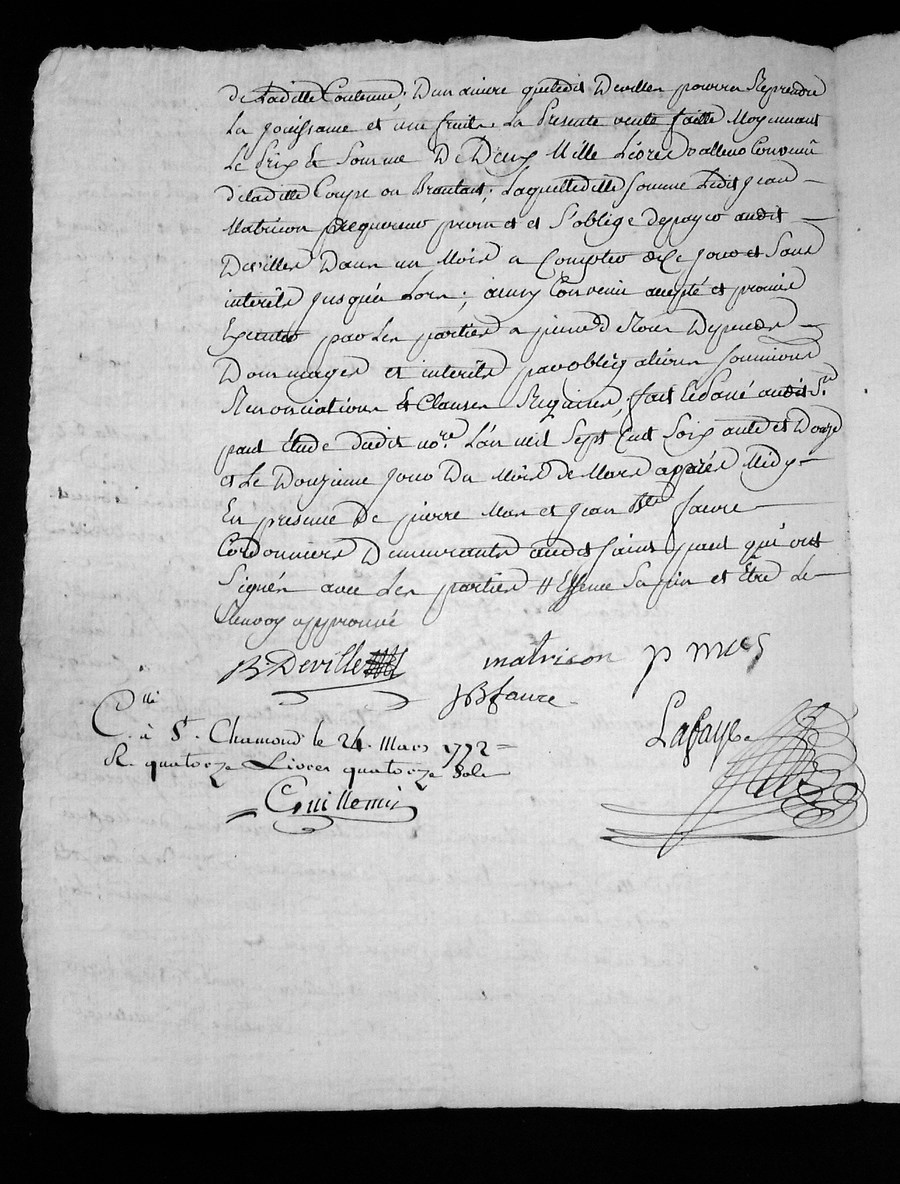 de Ladille Contenue; D'en avivre queledit Deville pourra Reprendre
La jouissance et une fruits. La Presente vente faitte Moyennant
Le Prix Et Somme De Deux Mille Livres valleur Convenüe
de laditte Couppe ou Broutant; Laquelleditte somme Ledit jean
Matricon acquereur promet et s'oblige de payer audit
Deville Dans un Mois a Compter de Ce jour et Sans
interêts jusques Lors; ainsy Convenu accepté et promis
Executer par Les parties a peine de tous Depends
Dommages et interêts par obligations soumissions
Renonciations Et Clauses Requises, fait Et Passé audit St.
paul Etude dudit nore. L'an mil Sept Cent Soixante et Douze
et Le Douzieme jour Du Mois de Mars apprés Midy
En presence De pierre Mas et jean Bte faure
Cordonniers Demeurants audit saint paul qui ont
Signés avec Les parties # Essence Sapin et Etre Le
Renvoy approuvé
B Deville matricon p mas
JB faure
Clle
C. à St. Chamond le 24. Mars 1772
R. quatorze Livres quatorze Sols
Lafaye
Guillemin